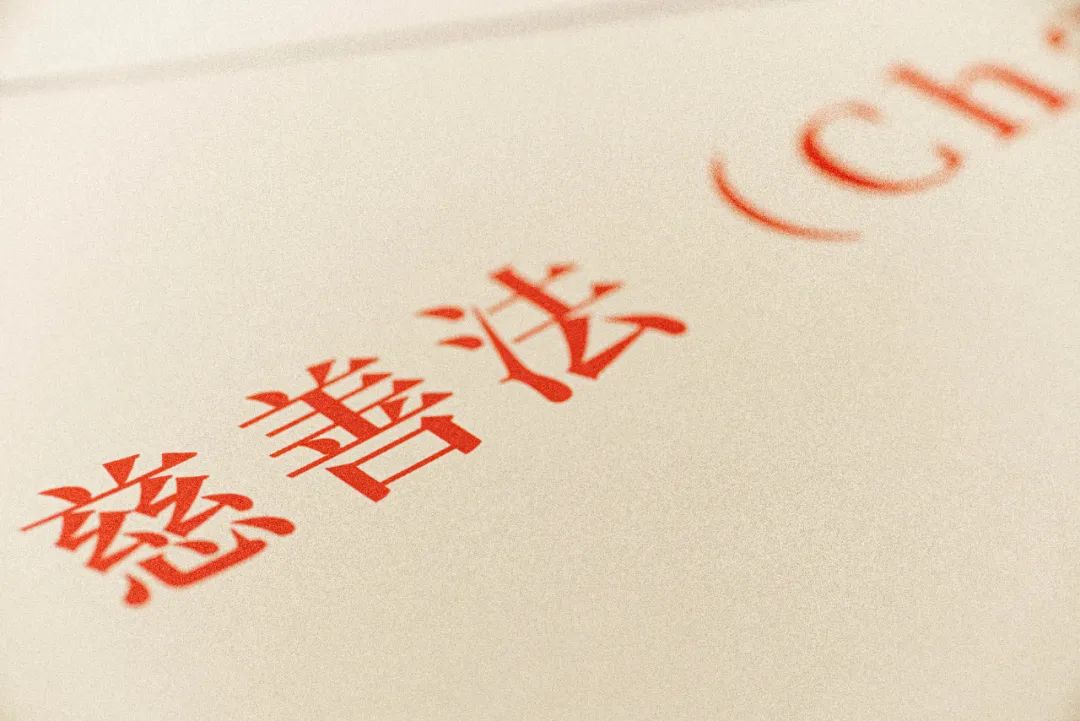 慈善法 (Cha